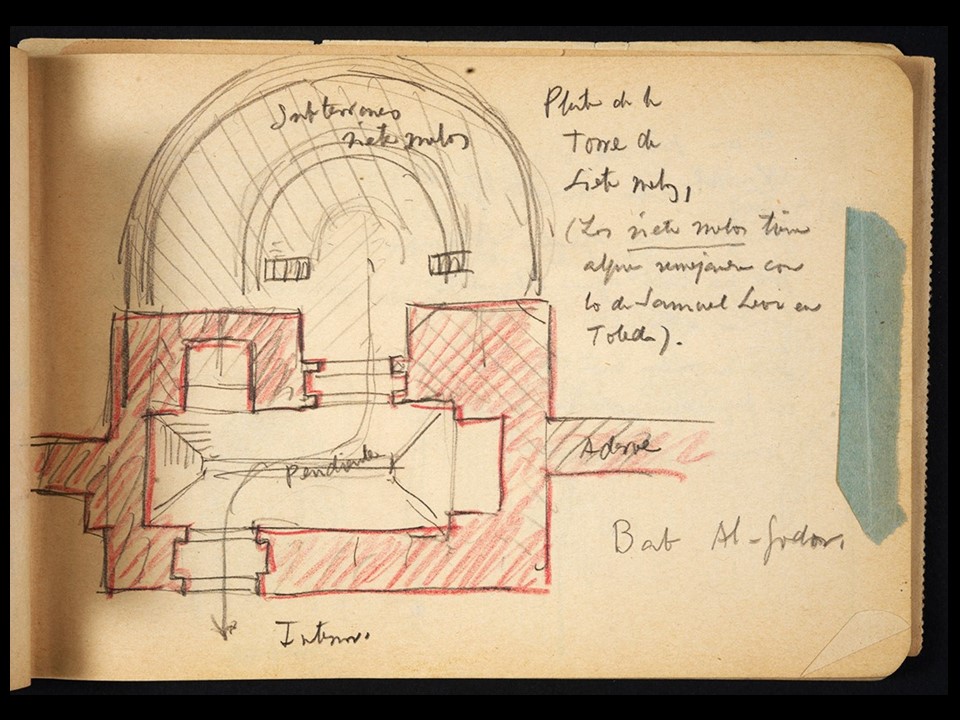 Subterraneo
siete suelos
Planta de la
Torre de
Siete suelos,
(Los siete suelos tiene
alguna semejanza con
lo de Samuel Levi en
Toledo).
pendiente
Adarve
Bab Al-Godor.
Interior.